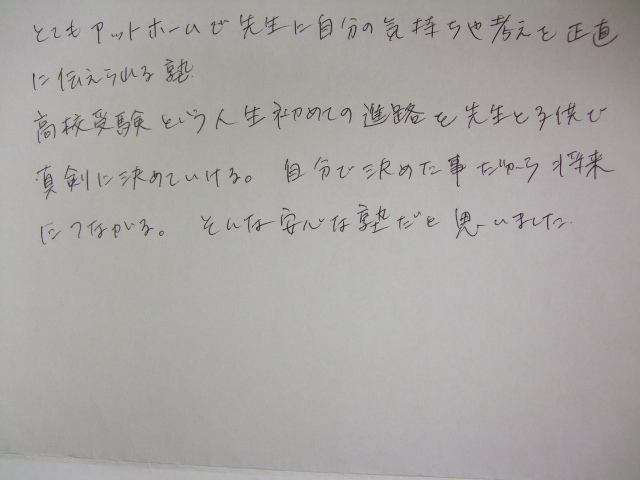 とてもアットホームで先生に自分の気持ちや考えを正直
に伝えられる塾
高校受験という人生初めての進路を先生と子供で
真剣に決めていける。 自分で決めた事だから将来
につながる。 そんな安心な塾だと思いました.